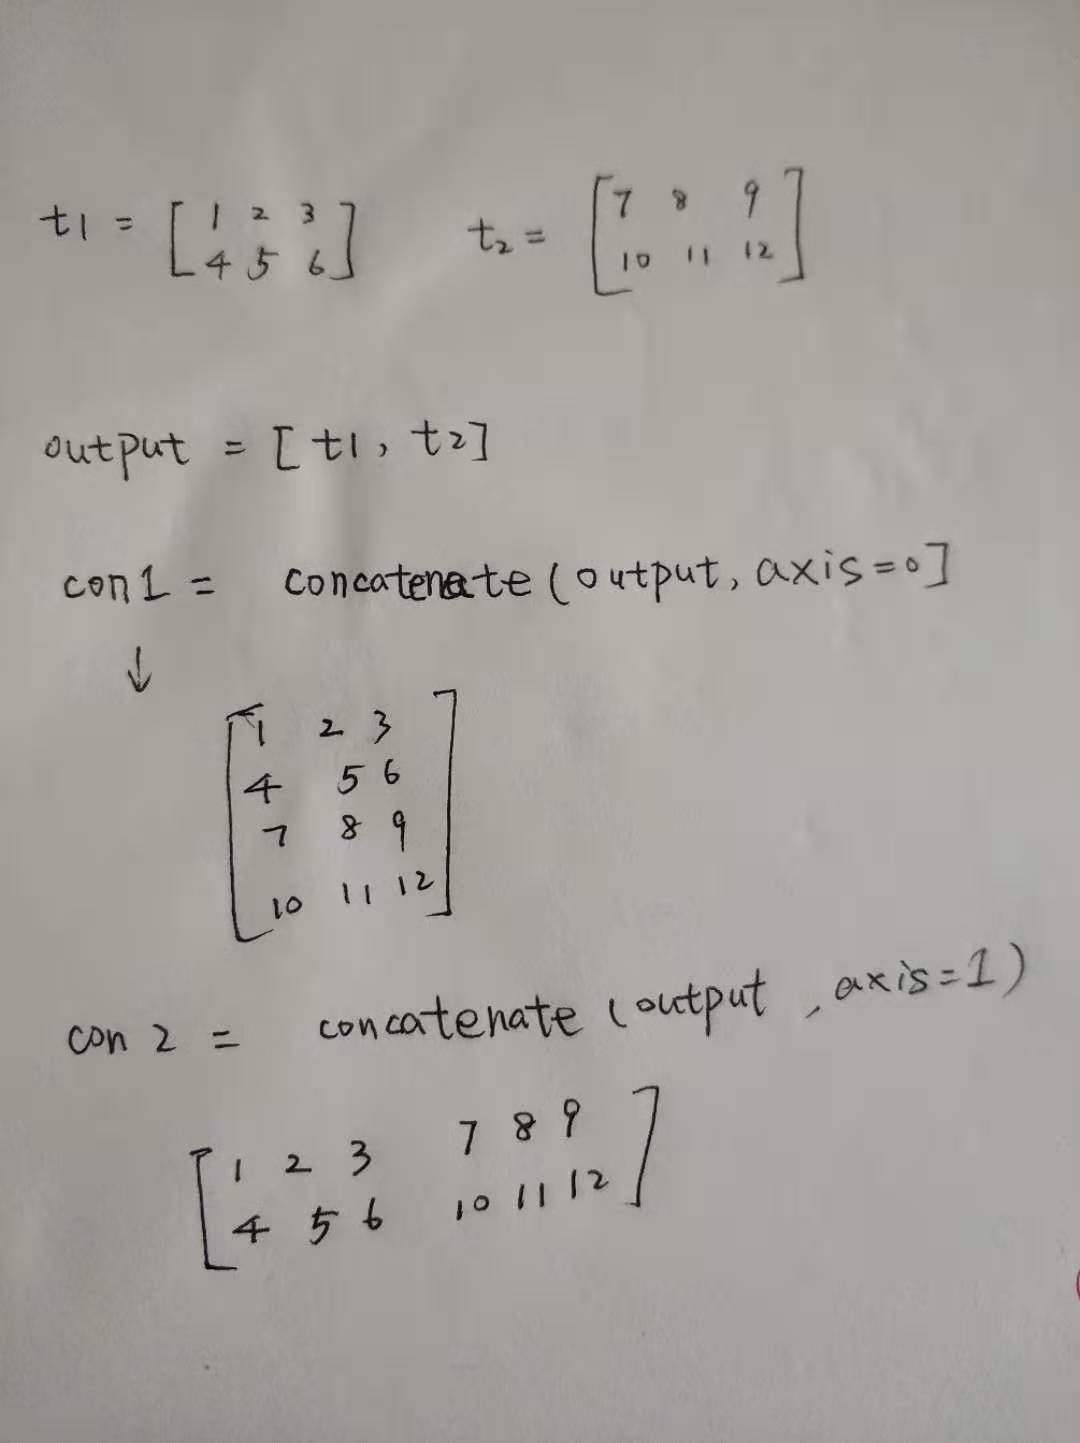 t1 = [ 1 2 3 t2 = [ 7 8 9
4 5 6 ] 10 11 12 ]
output = [ t1, t2 ]
con1 = concatenate ( output, axis=0 ]
↓
[ 1 2 3
4 5 6
7 8 9
10 11 12 ]
con 2 = concatenate ( output , axis=1 )
[ 1 2 3 7 8 9
4 5 6 10 11 12 ]